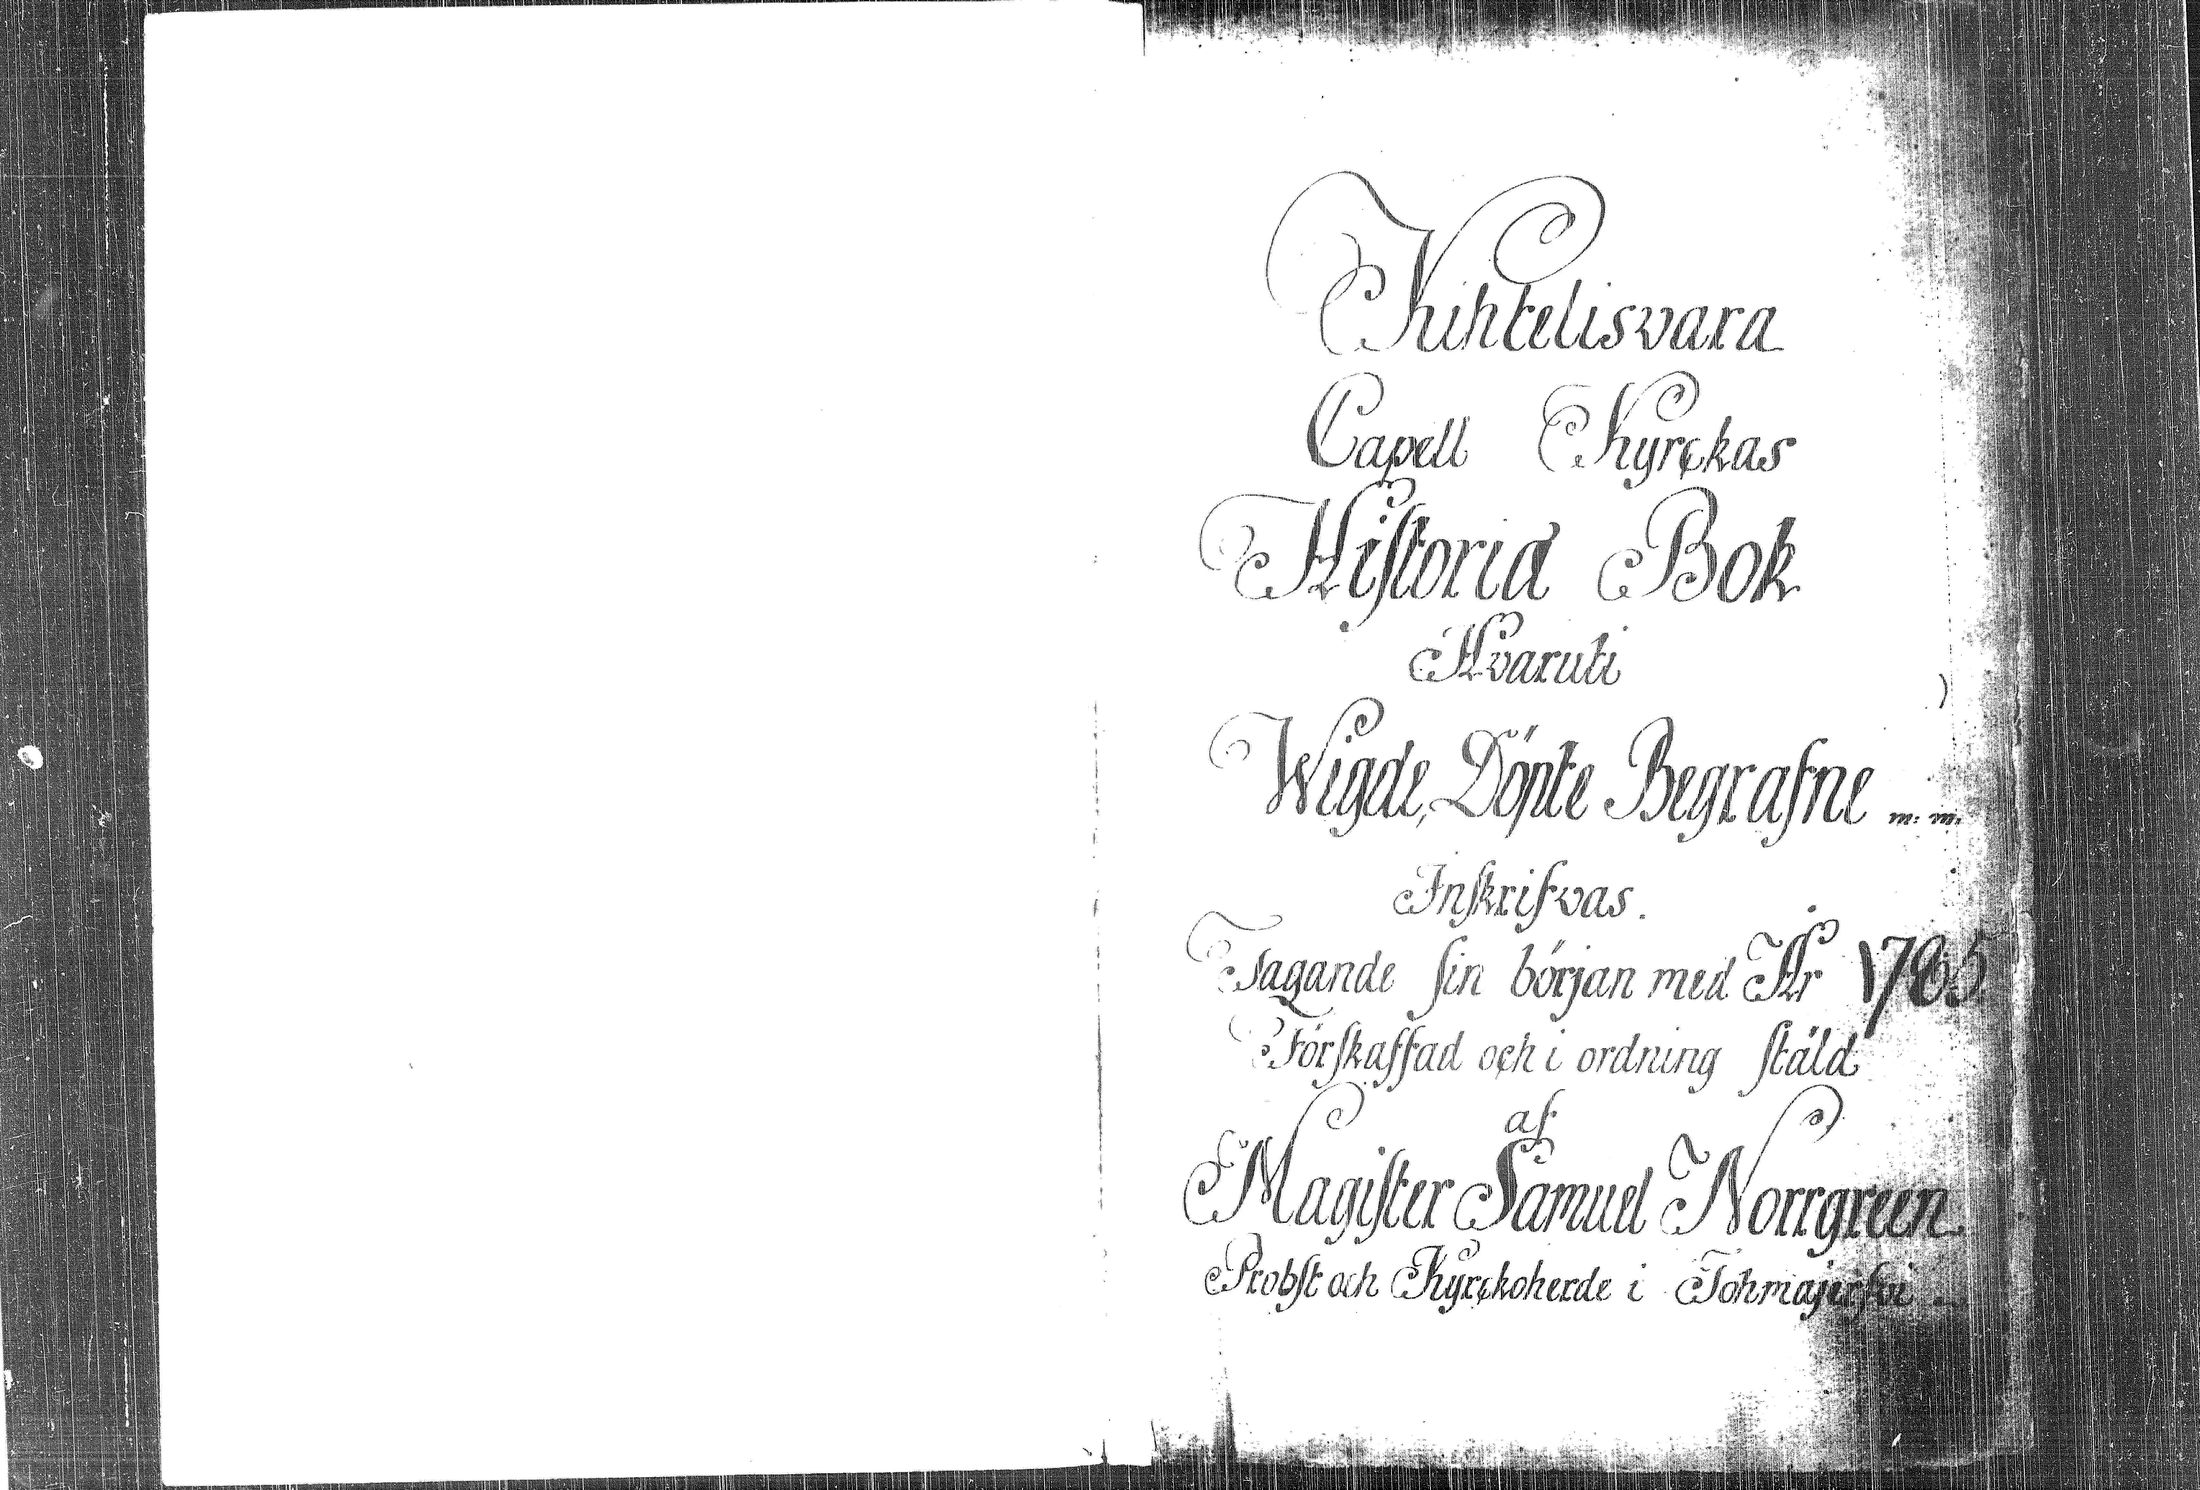 Kihtelisvara
Capell Kyrckas
Historia Bok
Hvaruti
Wigde, Döpte Begrafne m: m:
Inskrifvas.
Tagande sin början med År 1785
Förskaffad och i ordning stäld
af
Magister Samuel Norrgreen
Probst och Kyrckoherde i Tohmajerfvi